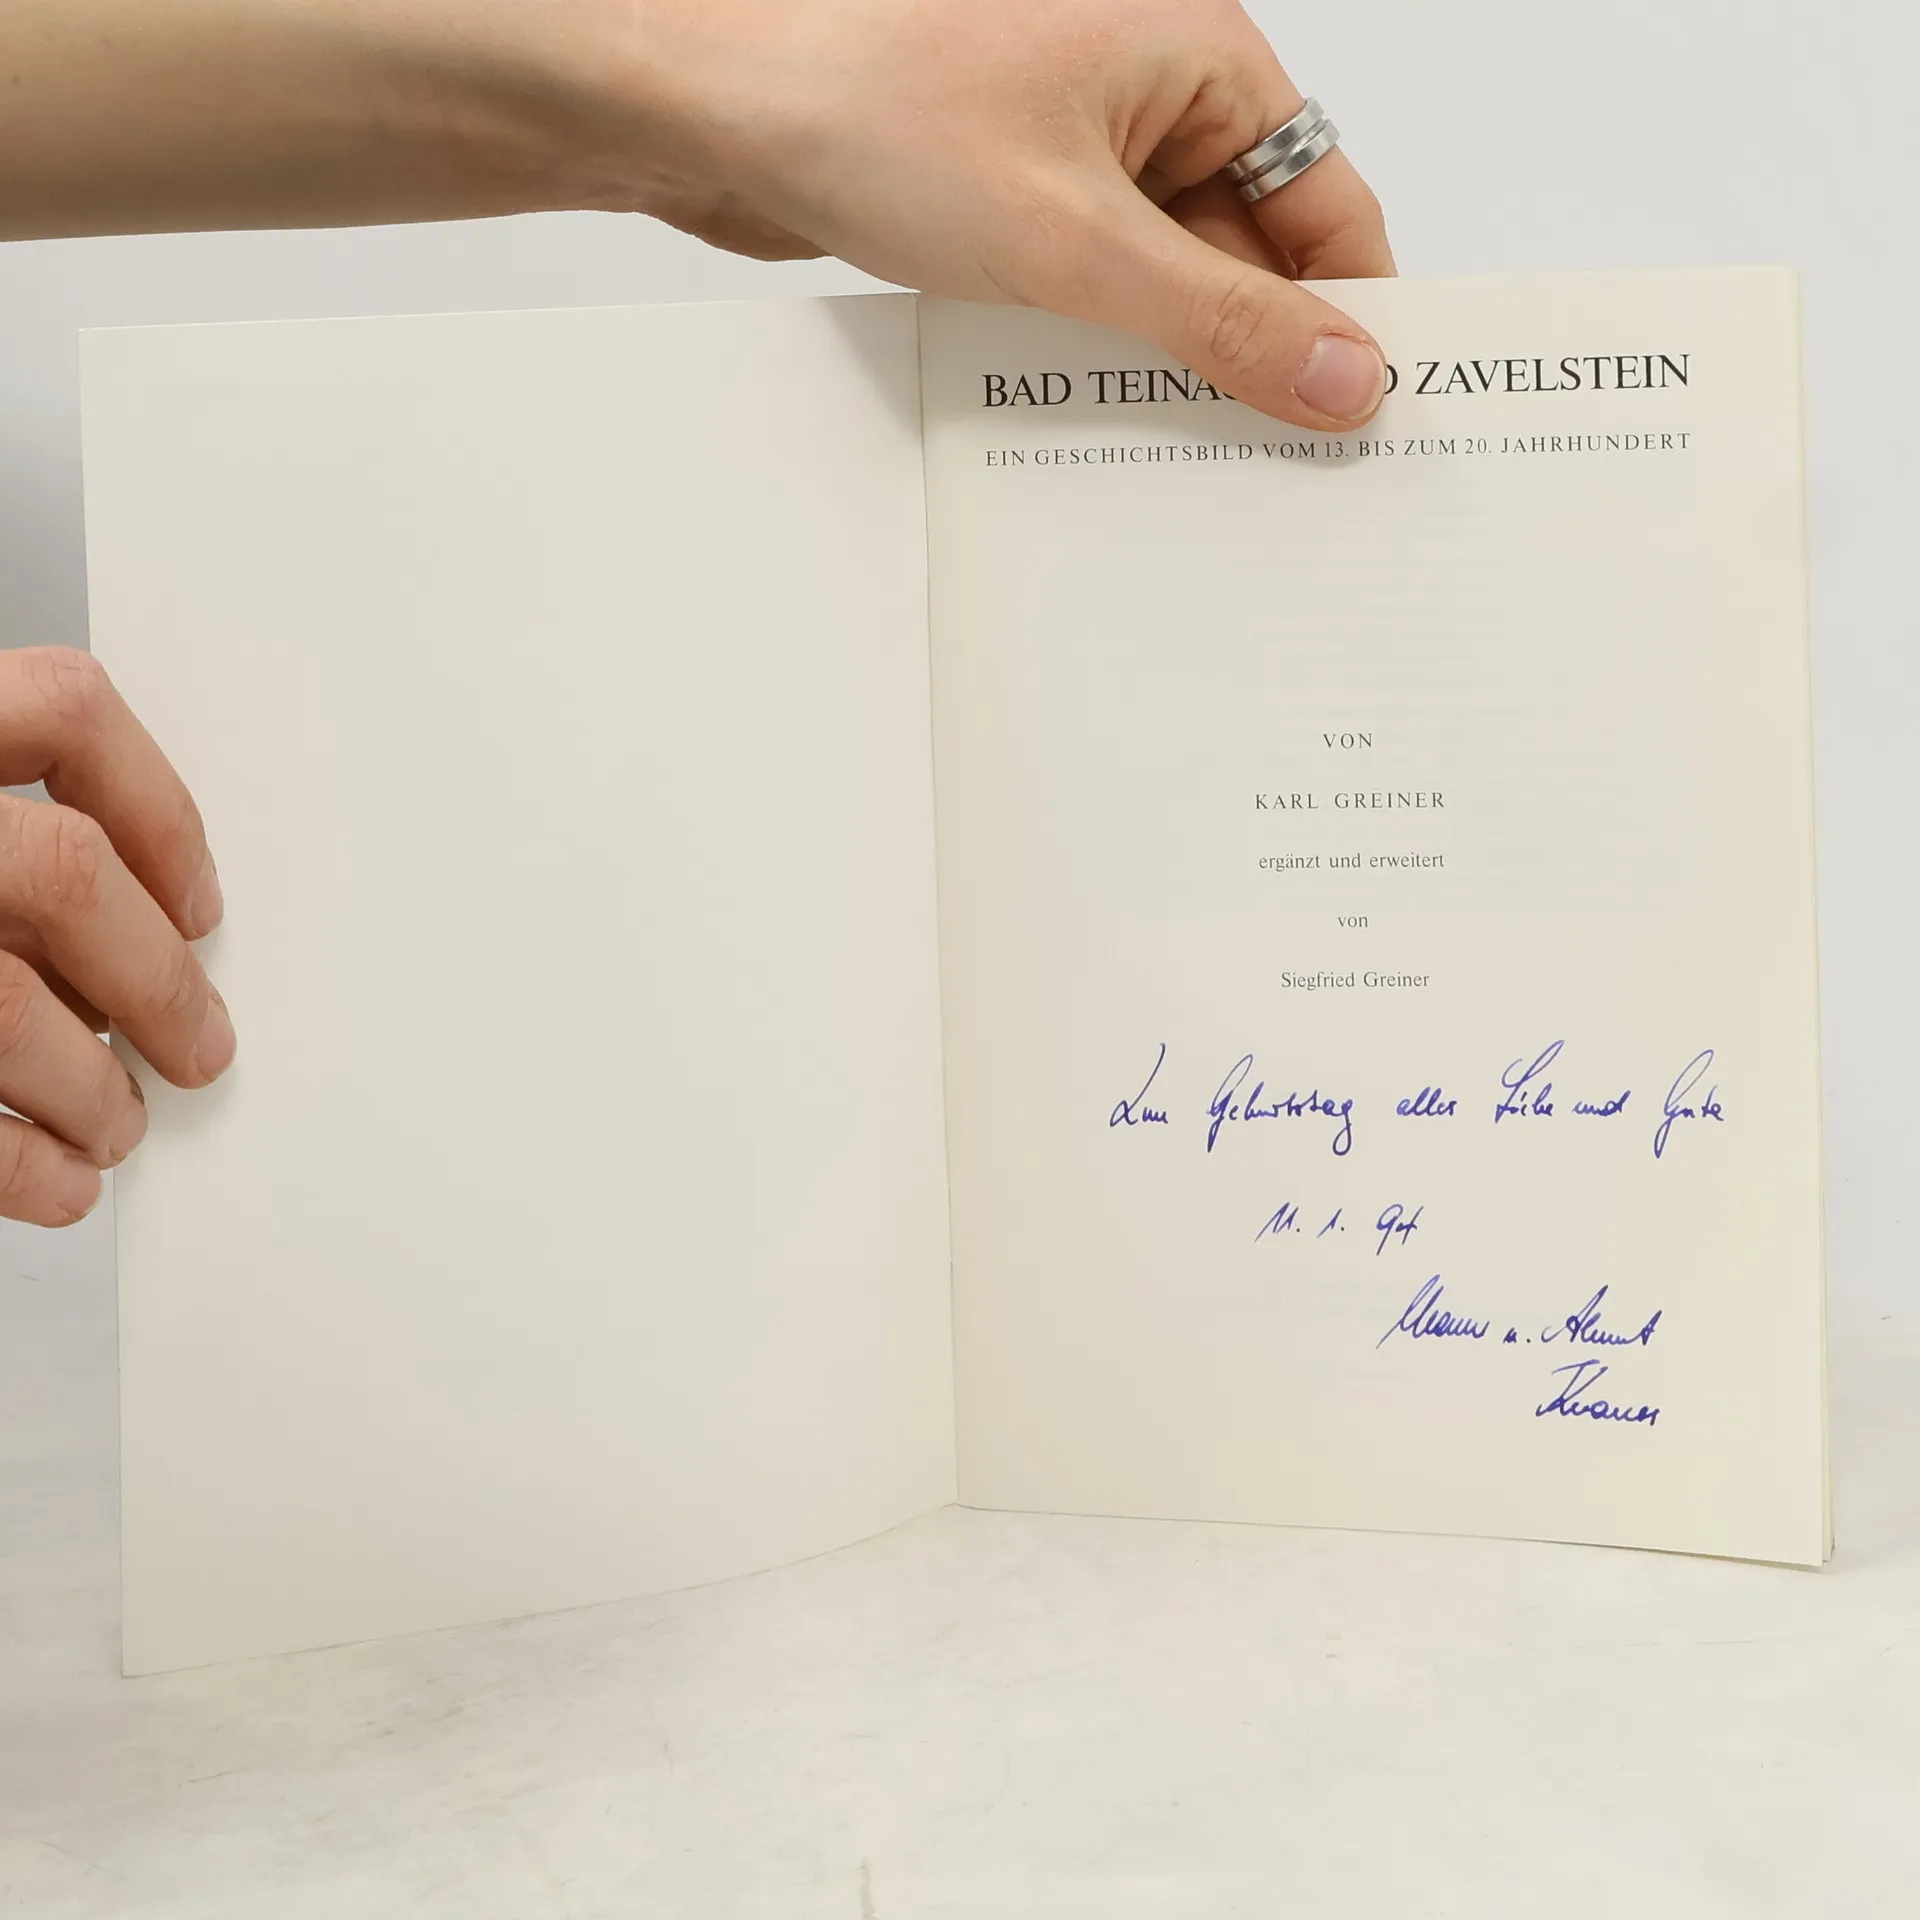 BAD TEINA D ZAVELSTEIN
EIN GESCHICHTSBILD VOM 13. BIS ZUM 20. JAHRHUNDERT
VON
KARL GREINER
ergänzt und erweitert
von
Siegfried Greiner
Zum Geburtstag alles Liebe und Gute
11. 1. 94
u. Almut